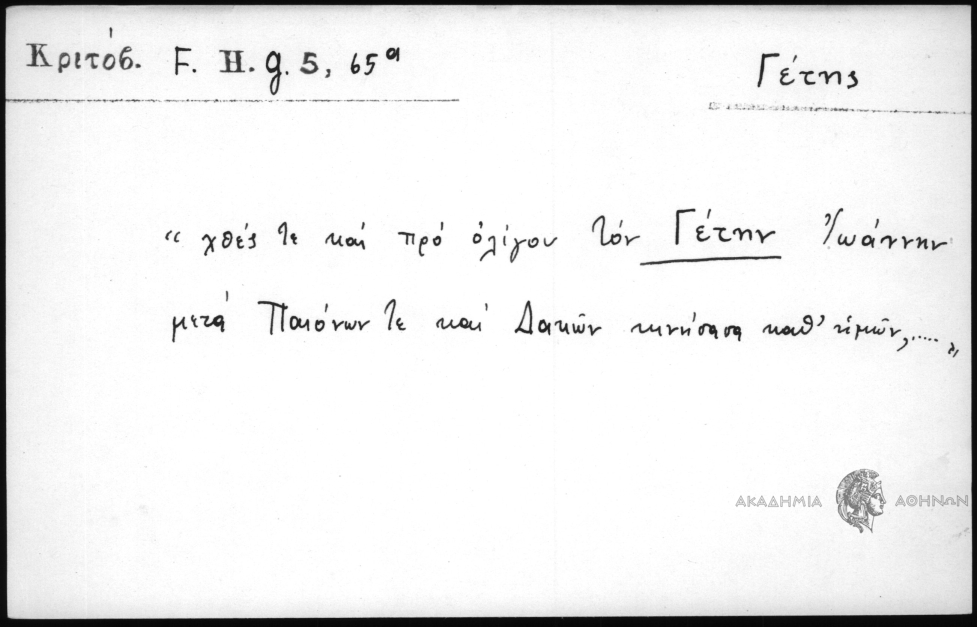 Κριτόβ. F. H. g. 5, 65ª
Γέτης
“ χθές τε καί πρό ὀλίγου τόν Γέτην Ἰωάννην
μετά Παιόνων τε καί Δακῶν κινήσασα καθ’ ἡμῶν,..... ”
ΑΚΑΔΗΜΙΑ ΑΘΗΝΩΝ